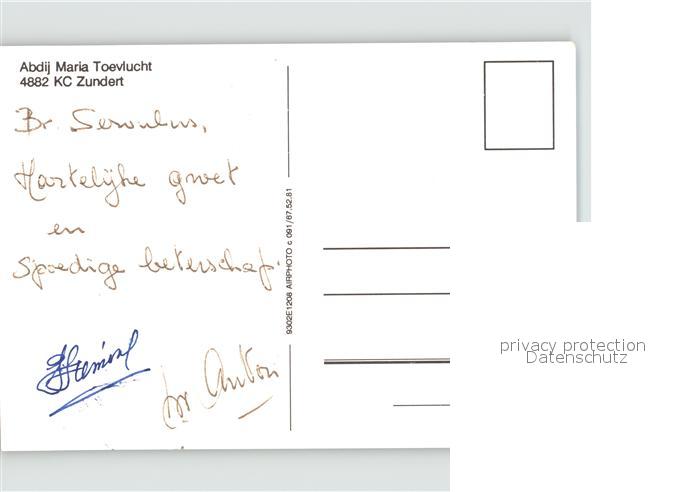 Abdij Maria Toevlucht
4882 KC Zundert
Br. Servulus,
Hartelijke groet
en
Spoedige beterschap.
br Anton
9302E1208 AIRPHOTO c 091/67.52.81
privacy protection
Datenschutz